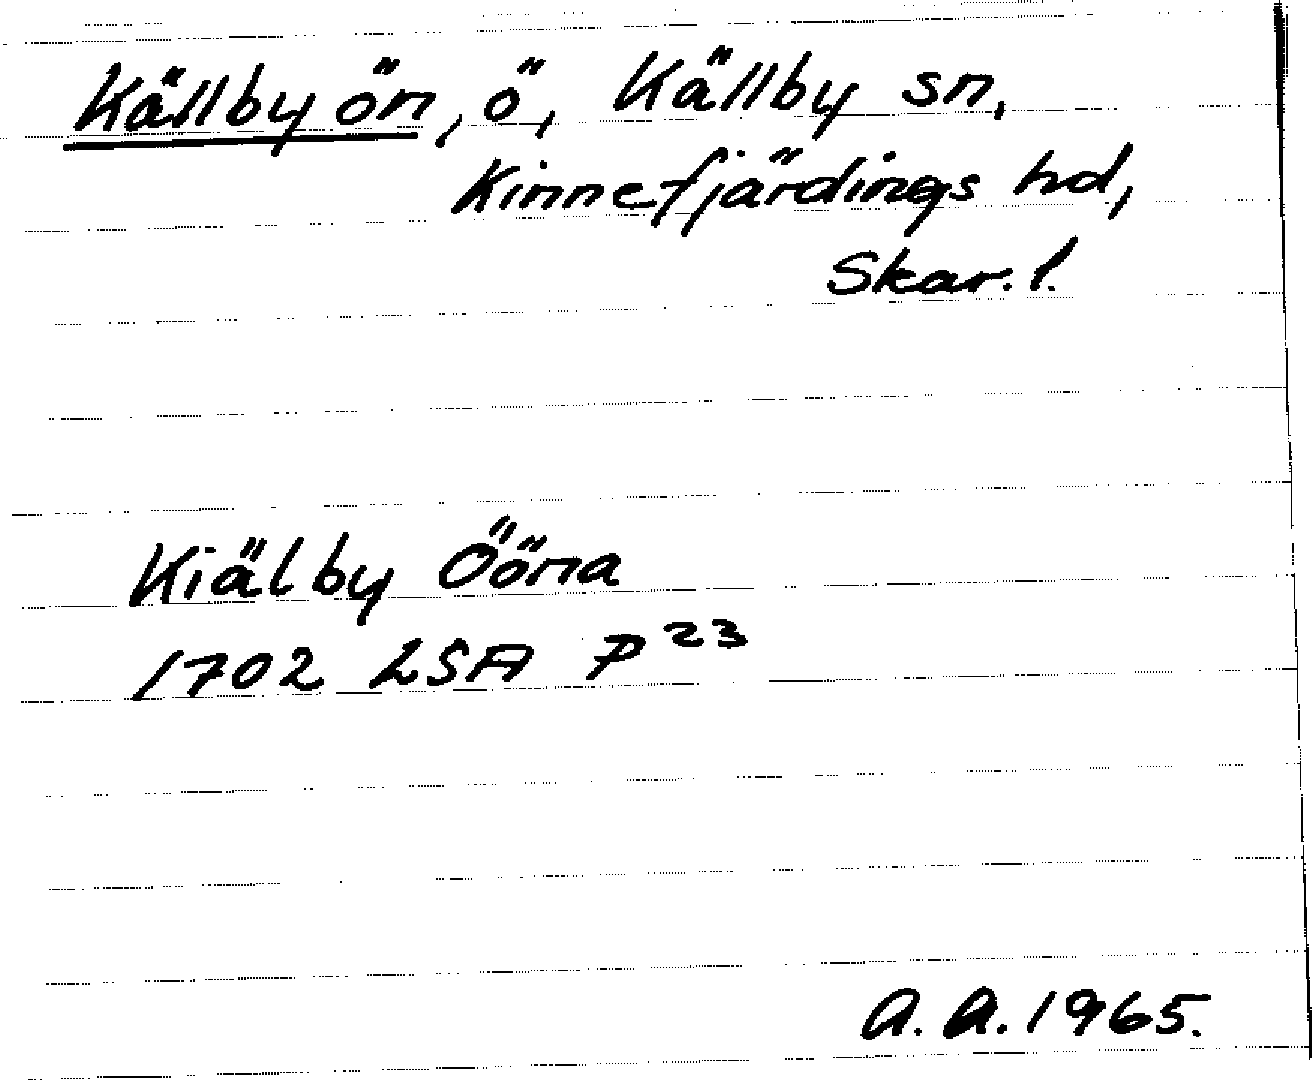 Källby ön, ö, Källby sn,
Kinnefjärdings hd,
Skar. l.
Kiälby Ööna
1702 LSA P 23
A. A. 1965.